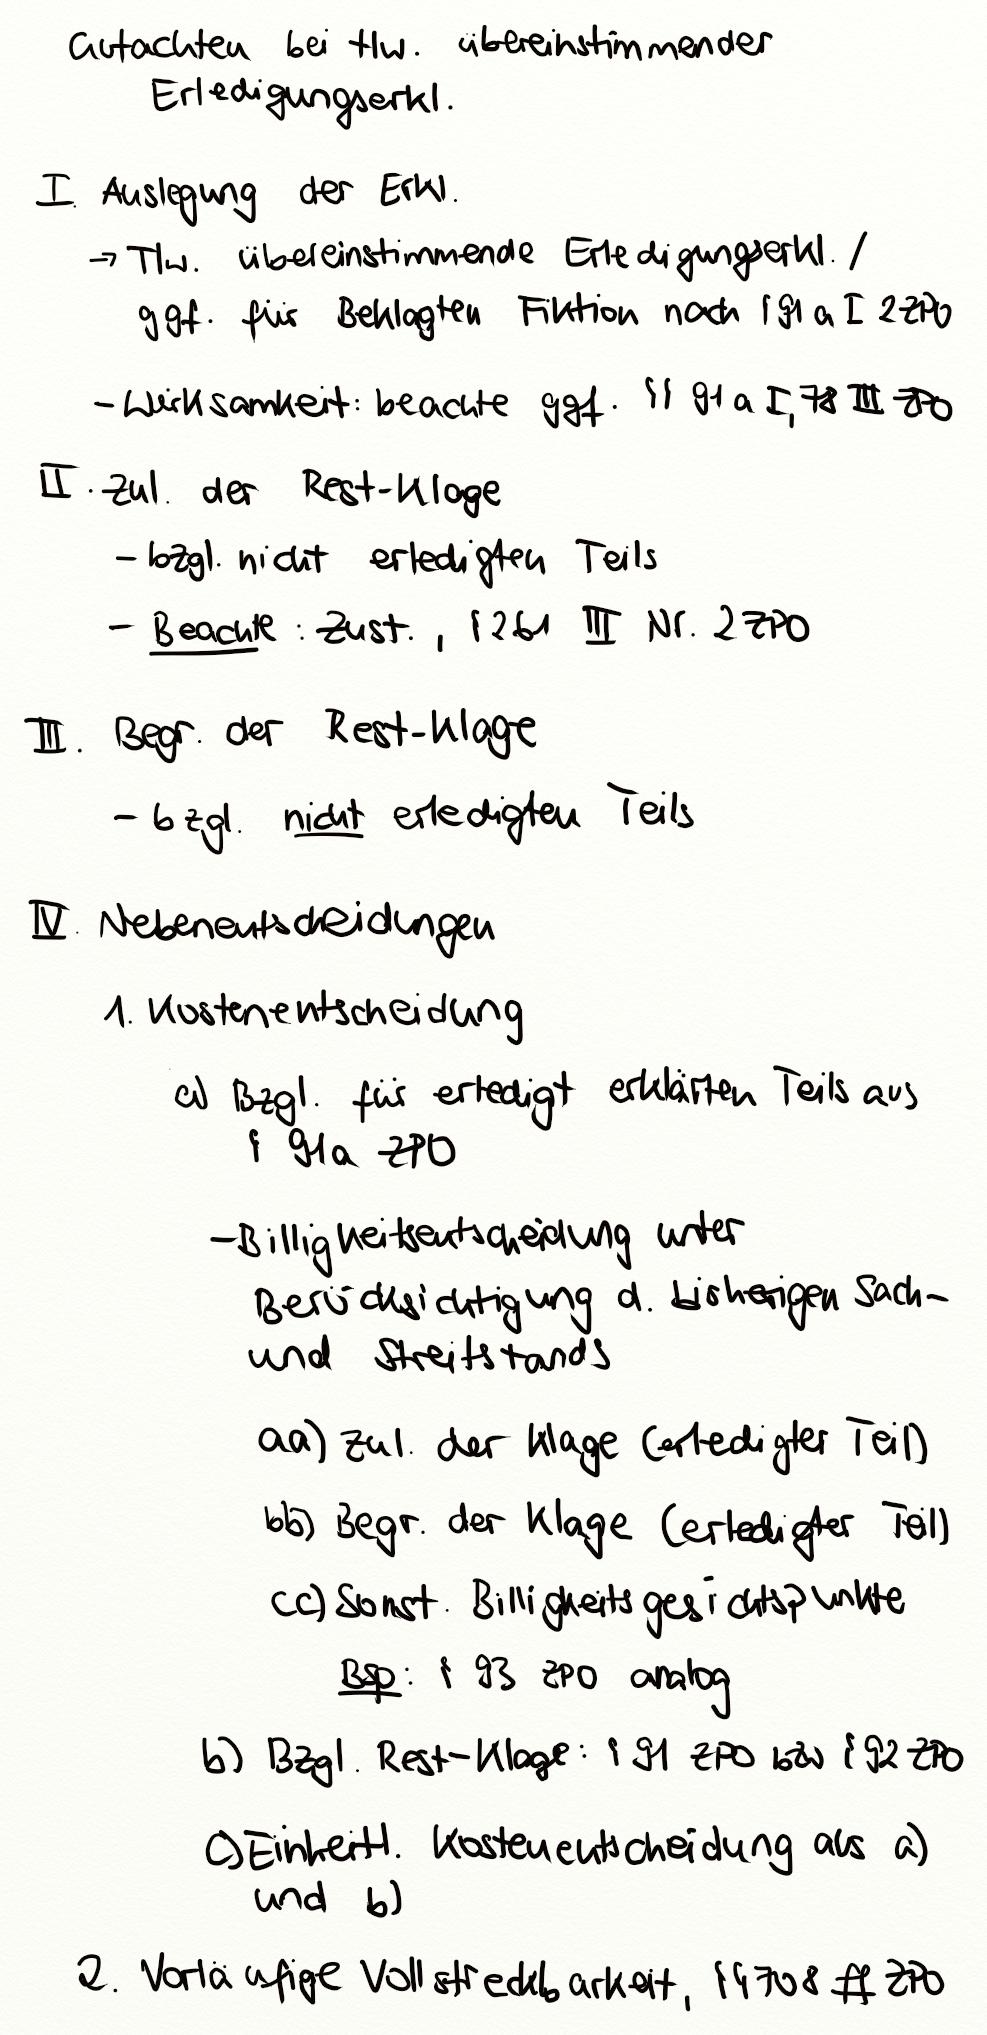 Gutachten bei tlw. übereinstimmender
Erledigungserkl.
I. Auslegung der Erkl.
→ Tlw. übereinstimmende Erledigungserkl. /
ggf. für Beklagten Fiktion nach § 91 a I 2 ZPO
- Wirksamkeit: beachte ggf. §§ 91 a I, 78 III ZPO
II. Zul. der Rest-Klage
- bzgl. nicht erledigten Teils
- Beachte: Zust., § 261 III Nr. 2 ZPO
III. Begr. der Rest-Klage
- bzgl. nicht erledigten Teils
IV. Nebenentscheidungen
1. Kostenentscheidung
a) Bzgl. für erledigt erklärten Teils aus
§ 91a ZPO
- Billigkeitsentscheidung unter
Berücksichtigung d. bisherigen Sach-
und Streitstands
aa) Zul. der Klage (erledigter Teil)
bb) Begr. der Klage (erledigter Teil)
cc) Sonst. Billigkeitsgesichtspunkte
Bsp: § 93 ZPO analog
b) Bzgl. Rest-Klage: § 91 ZPO bzw § 92 ZPO
c) Einheitl. Kostenentscheidung aus a)
und b)
2. Vorläufige Vollstreckbarkeit, §§ 708 ff ZPO